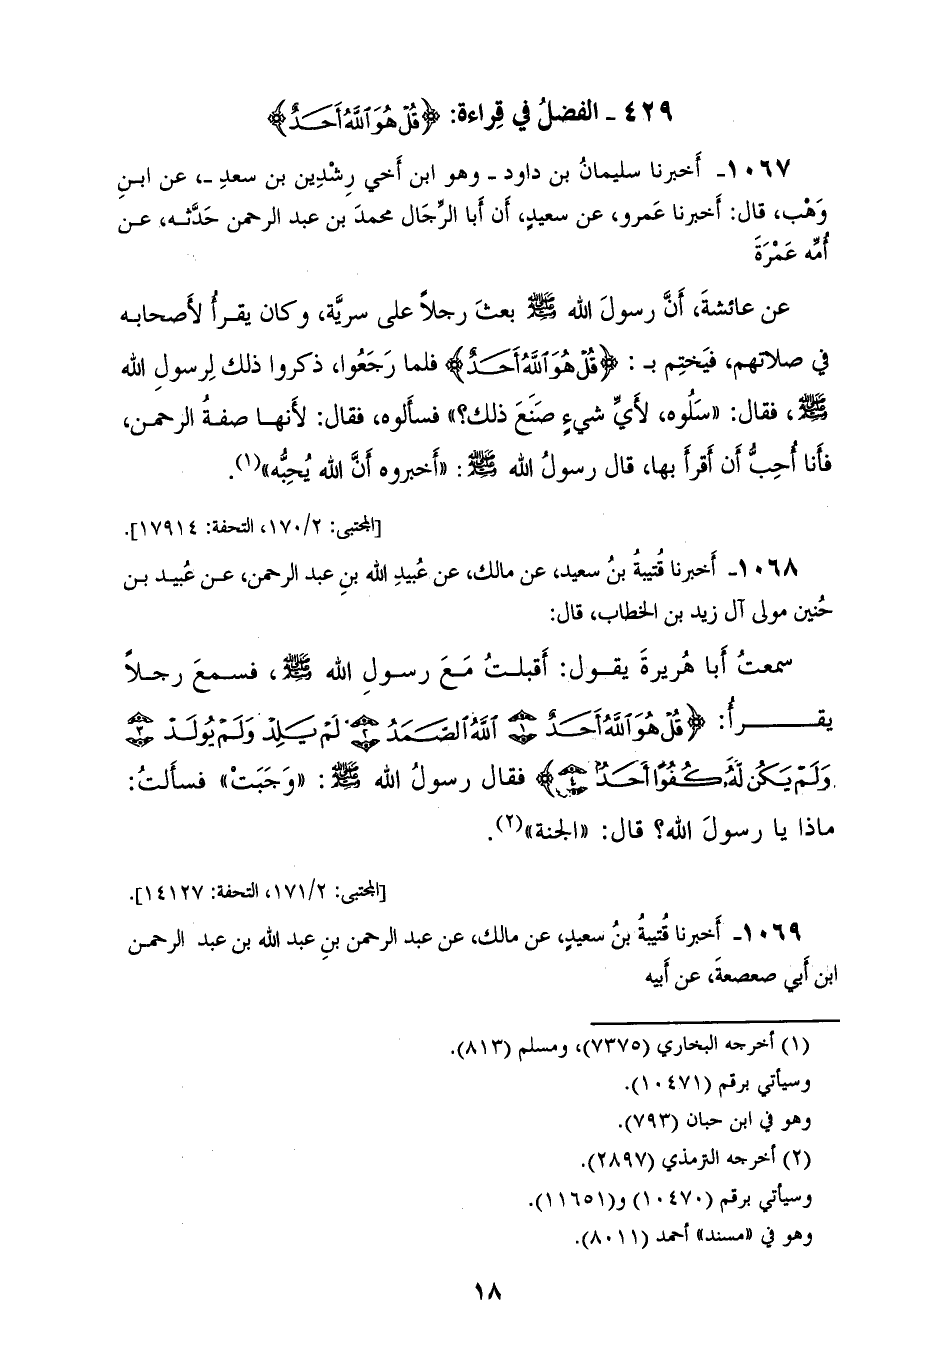 ٤٢٩ ـ الفضلُ في قِراءة: ﴿قُلْ هُوَ ٱللَّهُ أَحَدٌ﴾
١٠٦٧ـ أَخبرنا سليمانُ بن داود ـ وهو ابن أَخي رِشْدِين بن سعدِ ـ، عن ابنِ
وَهْب، قال: أَخبرنا عَمرو، عن سعيدٍ، أَن أَبا الرِّجَال محمدَ بن عبد الرحمن حَدَّثه، عن
أُمِّه عَمْرَةَ
عن عائشةَ، أَنَّ رسولَ الله ﷺ بعثَ رجلاً على سريَّة، وكان يقرأُ لأَصحابه
في صلاتهم، فيَختِم بـ : ﴿قُلْ هُوَ ٱللَّهُ أَحَدٌ﴾ فلما رَجَعُوا، ذكروا ذلك لِرسولِ الله
ﷺ، فقال: «سَلُوه، لأَيِّ شيءٍ صَنَعَ ذلك؟» فسأَلوه، فقال: لأَنها صفةُ الرحمن،
فأَنا أُحِبُّ أَن أَقرأَ بها، قال رسولُ الله ﷺ : «أَخبروه أَنَّ الله يُحِبُّه»(١).
[المجتبى: ١٧٠/٢، التحفة: ١٧٩١٤].
١٠٦٨ـ أَخبرنا قُتيبةُ بنُ سعيد، عن مالك، عن عُبيدِ الله بنِ عبد الرحمن، عن عُبيد بن
حُنين مولى آل زيد بن الخطاب، قال:
سمعتُ أَبا هُريرةَ يقول: أَقبلتُ مَعَ رسولِ الله ﷺ، فسمعَ رجلاً
يقرأُ: ﴿قُلْ هُوَ ٱللَّهُ أَحَدٌ ۝١ ٱللَّهُ ٱلصَّمَدُ ۝٢ لَمْ يَلِدْ وَلَمْ يُولَدْ ۝٣
وَلَمْ يَكُن لَّهُۥ كُفُوًا أَحَدٌ ۝٤﴾ فقال رسولُ الله ﷺ : «وَجَبَتْ» فسأَلتُ:
ماذا يا رسولَ الله؟ قال: «الجنة»(٢).
[المجتبى: ١٧١/٢، التحفة: ١٤١٢٧].
١٠٦٩ـ أَخبرنا قُتيبةُ بنُ سعيدٍ، عن مالك، عن عبد الرحمن بنِ عبد الله بن عبد الرحمن
ابن أَبي صعصعةَ، عن أَبيه
(١) أخرجه البخاري (٧٣٧٥)، ومسلم (٨١٣).
وسيأتي برقم (١٠٤٧١).
وهو في ابن حبان (٧٩٣).
(٢) أخرجه الترمذي (٢٨٩٧).
وسيأتي برقم (١٠٤٧٠) و(١١٦٥١).
وهو في «مسند» أحمد (٨٠١١).
١٨